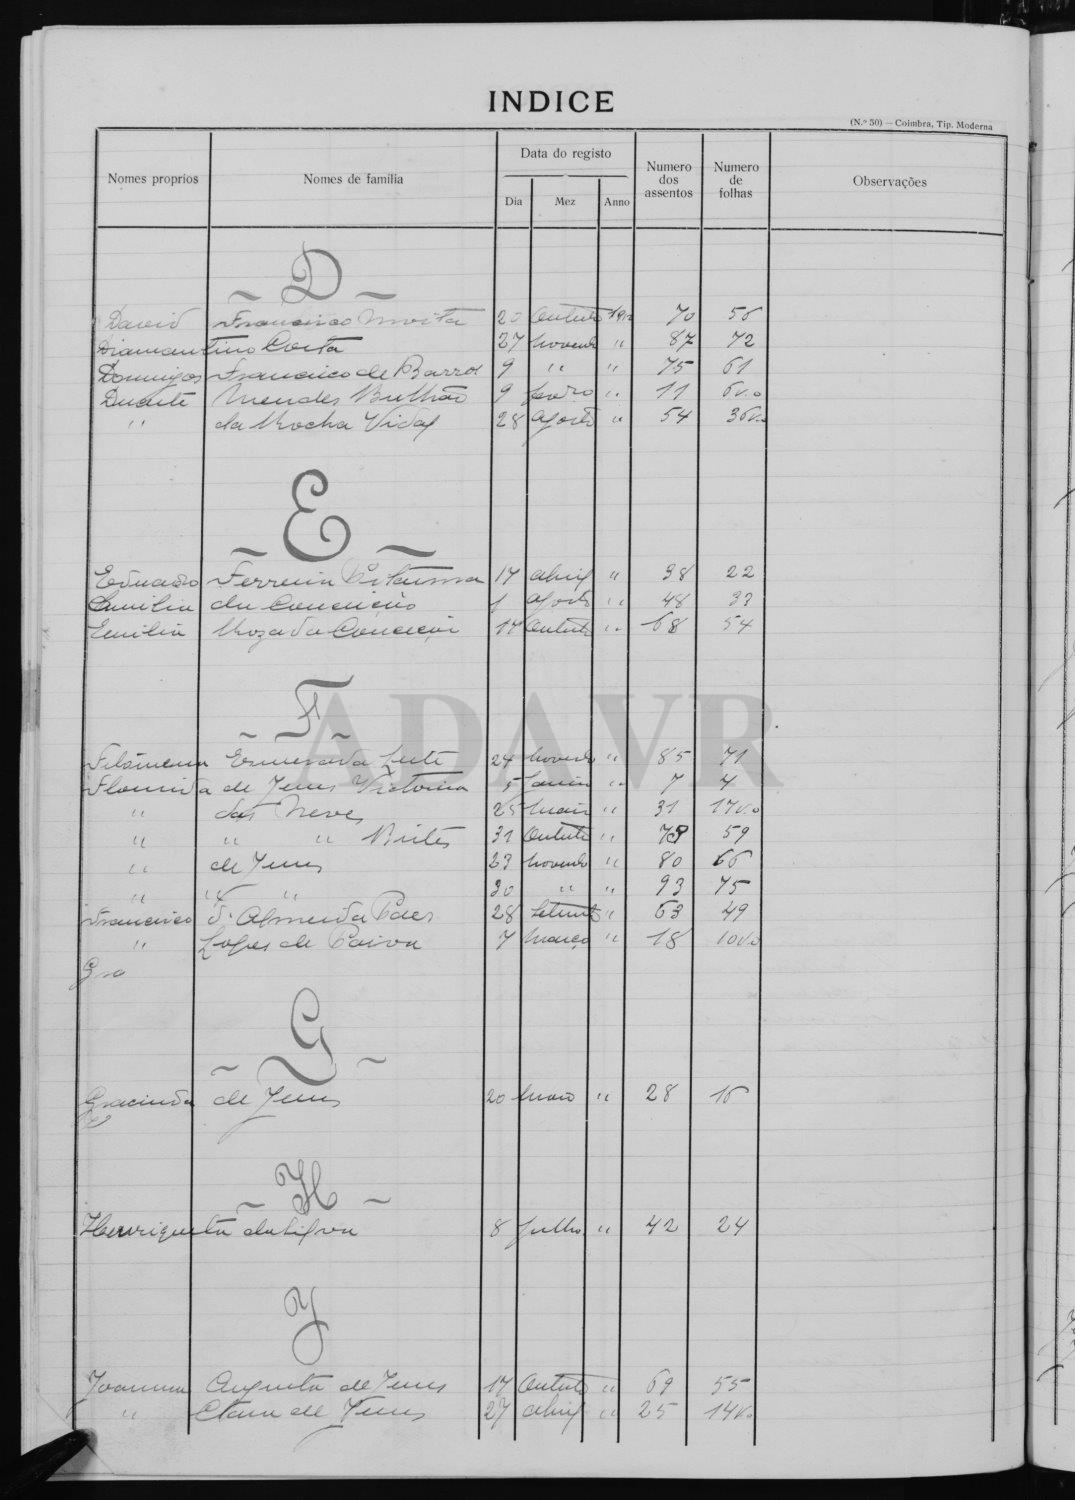 INDICE
(N.º 50) — Coimbra, Tip. Moderna
Nomes proprios Nomes de familia Data do registo Numero dos assentos Numero de folhas Observações
Dia Mez Anno
- D -
David Francisco Moita 20 Outubro 1912 70 56
Diamantino Costa 27 Novemb " 87 72
Domingos Francisco de Barros 9 " " 75 61
Duarte Mendes Bulhão 9 fevro " 11 6v.o
" da Rocha Vidal 28 Agosto " 54 36v.o
- E -
Eduardo Ferreira 17 abril " 38 22
Emilia da Conceição 1 Agosto " 48 33
Emilia Roza da Conceição 17 Outubro " 68 54
- F -
Filomena Esmerada Leite 24 Novemb " 85 71
Florinda de Jesus Victorina 5 Janeiro " 7 4
" das Neves 25 Maio " 31 17v.o
" " " Brites 31 Outubro " 73 59
" de Jesus 23 Novemb " 80 66
" " " 30 " " 93 75
Francisco d'Almeida Paes 28 Setemb " 63 49
" Lopes de Paiva 7 Março " 18 10v.o
Gra
- G -
Gracinda de Jesus 20 Maio " 28 16
- H -
Henriqueta da Silva 8 Julho " 42 24
J
Joanna Augusta de Jesus 17 Outubro " 69 55
" Clara de Jesus 27 abril " 25 14v.o
ADAVR